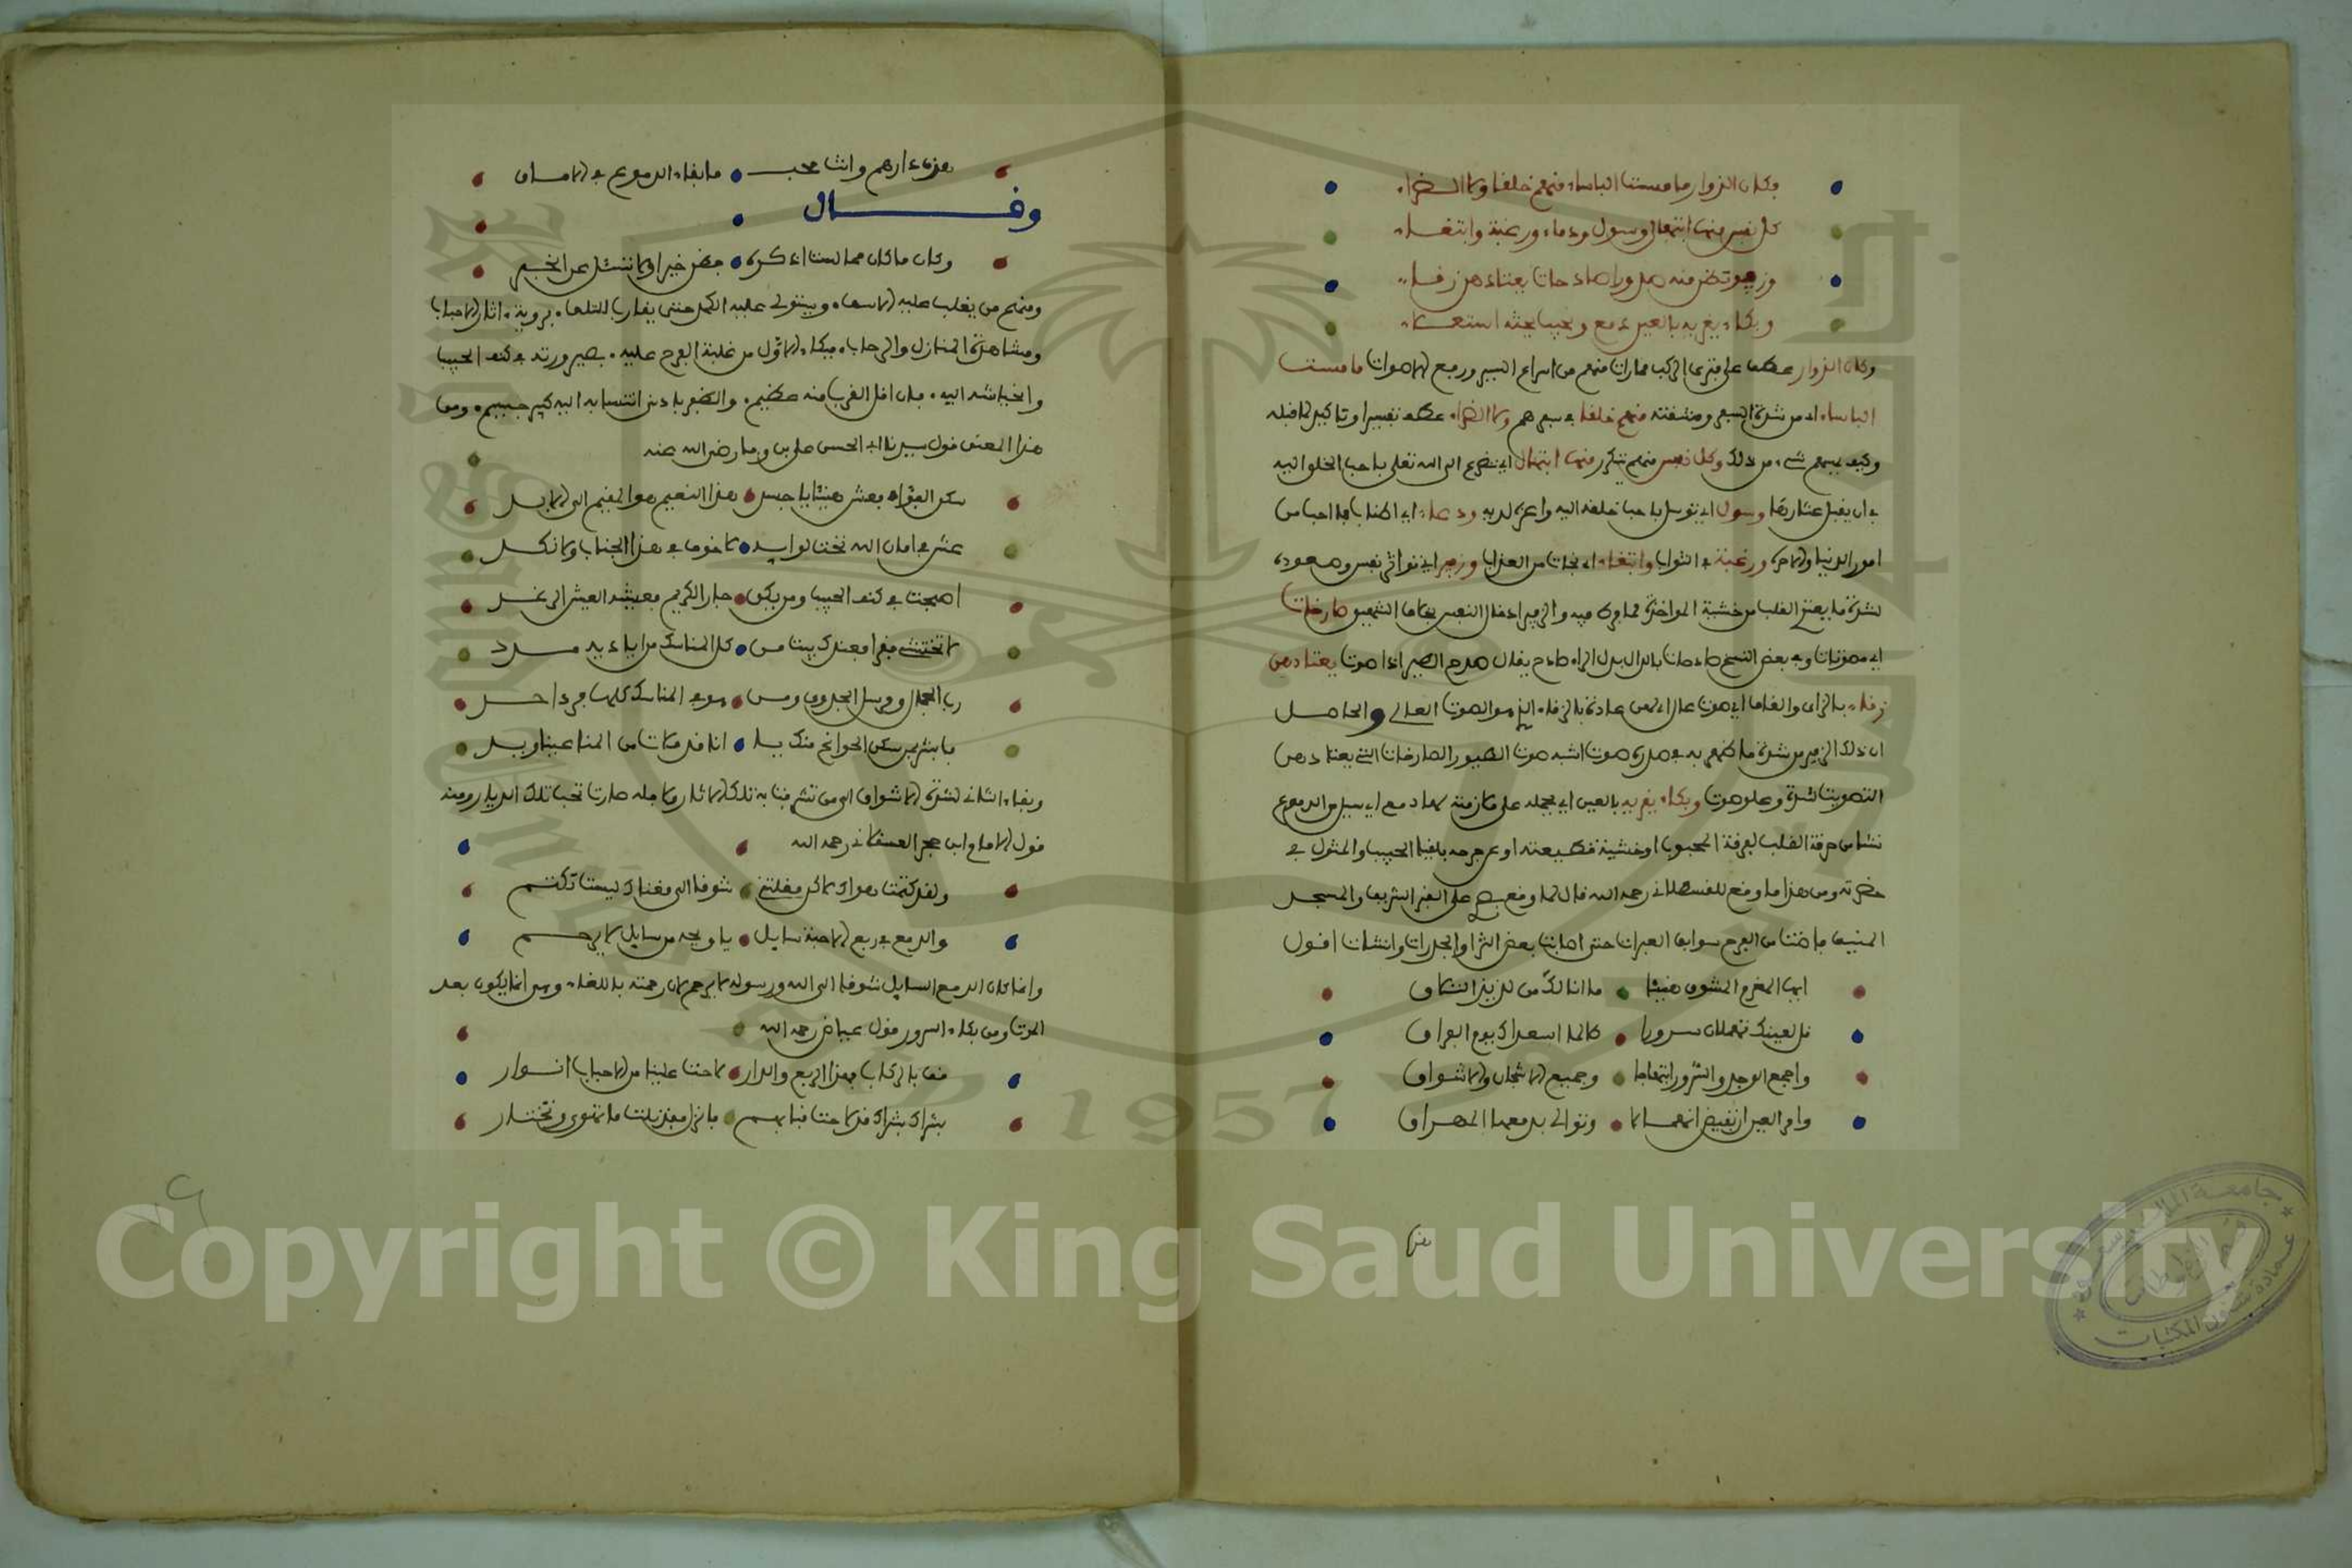 وكان الزوار ما مستت الباساء منهم خلفا ولا الضراء
كل نفس منها ابتهال وسول ودعاء ورغبة وابتغاء
وزفير تظن منه صدورا صادحات يعتادهن زقاء
وبكاء يغريه بالعين مدمع ونحيب يحثه استعلاء
وكان الزوار عطف على فترى الركب مارات منهم من اسراع السير ورفع الاصوات ما مستت
الباساء اي من شدة السفر ومشقته منهم خلفا في سيرهم ولا الضراء عطف تفسير او تاكيد لما قبله
وكيف يمسهم شيء من ذلك وكل نفس منهم تتكرر منها ابتهال اي تضرع الى الله تعلى باحب الخلق اليه
في ان يقبل عثارتها وسول اي توسل باحب خلقه اليه واعزه لديه ودعاء اي اطناب بما احب من
امور الدنيا والاخرة ورغبة في الثواب وابتغاء اي نجات من العذاب وزفير اي تواتر نفس وصعوده
لشدة ما يعتري القلب من خشية المواخذة مما فرط فيه والزفير ادخال النفس بخلاف الشهيق صارخات
اي مصوتات وفي بعض النسخ صادحات بالدال بدل الراء صادح يقال صدح الطير اذا صوت يعتادهن
زقاء بالزاي والقاف اي صوت عال اي لهن عادة بالزقاء الذي هو الصوت العالي والحاصل
ان ذلك الزفير من شدة ما ظهر به في صدره صوت اشبه صوت الطيور الصارخات التي يعتادهن
التصويت شدة وعلو صوت وبكاء يغريه بالعين اي يحمله على ملازمته لها دمع اي سيل من الدموع
نشا من حرقة القلب لفرقة المحبوب او خشية قطيعته او عن فرحه بلقيا الحبيب والمثول في
حضرته ومن هذا ما وقع للقسطلاني رحمه الله قال لما وقع بصري على القبر الشريف والمسجد
المنيف فاضت من الفرح سوابق العبرات حتى اصابت بعض الثرا والجدرات وانشات اقول
ايها المغرم المشوق هنيئا ما انالك من لذيذ التلاق
قل لعينيك تهملان سرورا طالما اسعداك يوم الفراق
واجمع الوجد والسرور ابتهاجا وجميع الاشجان والاشواق
وامر العين ان تفيض انهمالا وتوالى بدمعها المهراق
هذه
هذه دارهم وانت محب ما بقاء الدموع في الاماق
وقال
وكان ما كان مما لست اذكره فظن خيرا ولا تسئل عن الخبر
ومنهم من يغلب عليه الاسف ويستولي عليه الكمد حتى يقارب للتلف بروية اثار الاحباب
ومشاهدة المنازل والرحاب فبكاء الاول من غلبة الفرح عليه بصيرورته في كنف الحبيب
وانحياشه اليه فان اقل القرب منه عظيم والظفر بادنى انتساب اليه كبير جسيم ومن
هذا المعنى قول سيدنا ابي الحسن علي بن وفا رضي الله عنه
سكن الفؤاد فعش هنيئا يا جسد هذا النعيم هو المقيم الى الابد
عش في امان الله تحت لوايه لا خوف في هذا الجناب ولا نكد
اصبحت في كنف الحبيب ومن يكن جار الكريم فعيشه العيش الرغد
لا تختشي فقرا فعندك بيت من كل المنا لك من اياديه مدد
رب الجمال ومرسل الجدوى ومن هو في المناسك كلها فرد احد
يا بشر من سكن الجوانح منك يا انا قد ملات من المنا عينا ويد
وبقاء الثاني لشدة الاشواق الى من تشرفت به تلك الاثار ولاجله صارت تحب تلك الديار ومنه
قول الامام ابن حجر العسقلاني رحمه الله
ولقد كتمت هواك لاكن مقلتي شوقا الى مغناك ليست تكتم
والدمع في ربع الاحبة سايل يا ويحه من سايل لا يرحم
وانما كان الدمع السايل شوقا الى الله ورسوله لا يرحم لان رحمته باللقاء وهي انما يكون بعد
الموت ومن بكاء السرور قول عياض رحمه الله
قف بالركاب فهذا الربع والدار لاحت علينا من الاحباب انوار
بشراك بشراك قد لاحت قبابهم فانزل فقد نلت ما تهوى وتختار
Copyright © King Saud University
1957